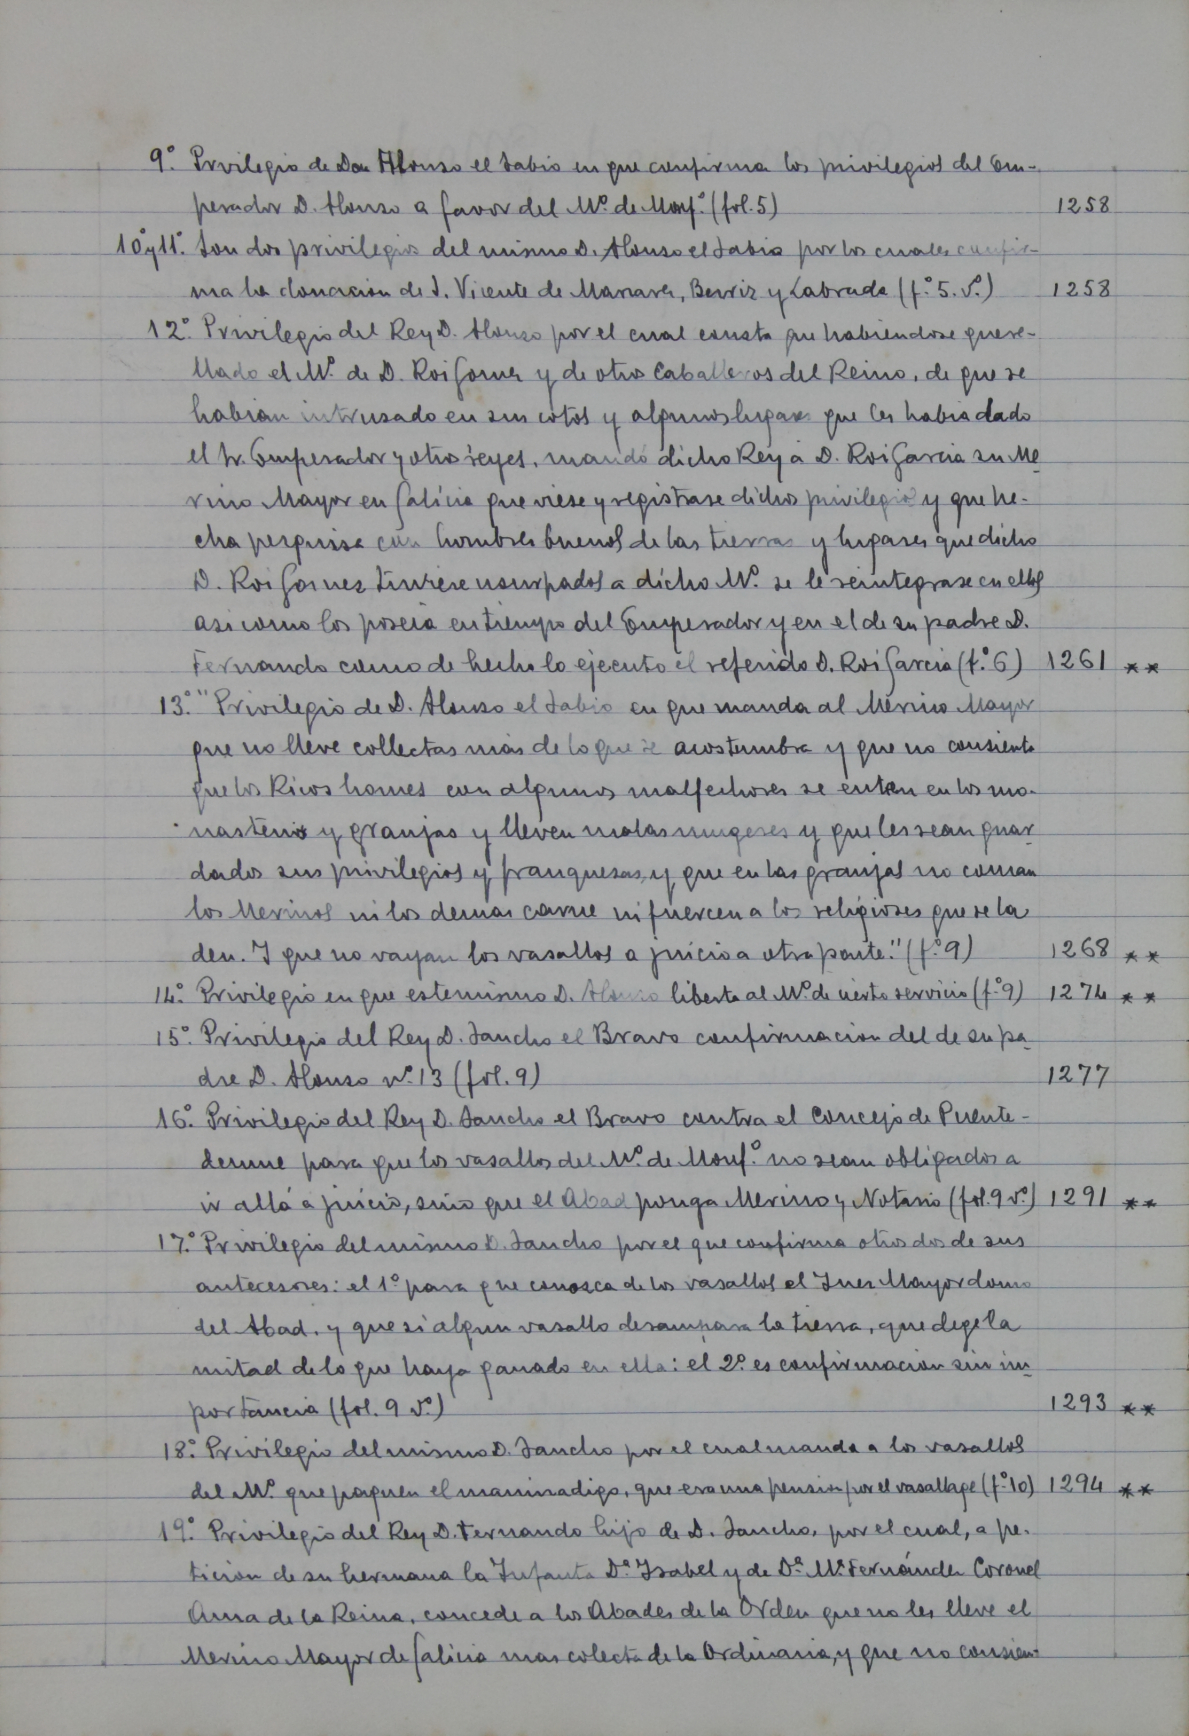 9.º Prvilegio de Don Alonso el Sabio en que confirma los privilegios del Em-
perador D. Alonso a favor del Mº. de Monf.º (fol. 5) 1258
10º y 11º. Son dos privilegios del mismo D. Alonso el Sabio por los cuales confir-
ma la donacion de S. Vicente de Marares, Berriz y Labrada (f.º 5. vº.) 1258
12.º Privilegio del Rey D. Alonso por el cual consta que habiendose quere-
llado el Mº. de D. Roi Gomez y de otros Caballeros del Reino, de que se
habian intrusado en sus cotos y algunos lugares que les habia dado
el Sr. Emperador y otros reyes, mandó dicho Rey a D. Roi Garcia su Me
rino Mayor en Galicia que viese y registrase dichos privilegios y que he-
cha pesquisa con hombres buenos de las tierras y lugares que dicho
D. Roi Gomez tuviere usurpados a dicho Mº. se le reintegrase en ellos
asi como los poseia en tiempo del Emperador y en el de su padre D.
Fernando como de hecho lo ejecuto el referido D. Roi Garcia (f.º 6) 1261 **
13.º "Privilegio de D. Alonso el Sabio en que manda al Merino Mayor
que no lleve collectas más de lo que se acostumbra y que no consienta
que los Ricos homes con algunos malfechores se entren en los mo-
nasterios y granjas y lleven malas mugeres y que les sean guar
dados sus privilegios y franquesas, y que en las granjas no coman
los Merinos ni los demas carne ni fuercen a los religiosos que se la
den. Y que no vayan los vasallos a juicio a otra parte." (f.º 9) 1268 **
14.º Privilegio en que este mismo D. Alonso liberta al Mº. de cierto servicio (f.º 9) 1274 **
15.º Privilegio del Rey D. Sancho el Bravo confirmacion del de su pa
dre D. Alonso nº. 13 (fol. 9) 1277
16.º Privilegio del Rey D. Sancho el Bravo contra el Concejo de Puente-
deume para que los vasallos del Mº. de Monf.º no sean obligados a
ir allá a juicio, sino que el Abad ponga Merino y Notario (fol. 9 vº.) 1291 **
17.º Privilegio del mismo D. Sancho por el que confirma otros dos de sus
antecesores: el 1º para que conosca de los vasallos el Juez Mayordomo
del Abad, y que si algun vasallo desampara la tierra, que dege la
mitad de lo que haya ganado en ella: el 2º. es confirmacion sin im
portancia (fol. 9 vº.) 1293 **
18.º Privilegio del mismo D. Sancho por el cual manda a los vasallos
del Mº. que paguen el maninadigo, que era una pension por el vasallage (f.º 10) 1294 **
19.º Privilegio del Rey D. Fernando hijo de D. Sancho, por el cual, a pe-
ticion de su hermana la Infanta Dª. Isabel y de Dª. Mª. Fernández Coronel
Ama de la Reina, concede a los Abades de la Orden que no les lleve el
Merino Mayor de Galicia mas colecta de la Ordinaria, y que no consien-